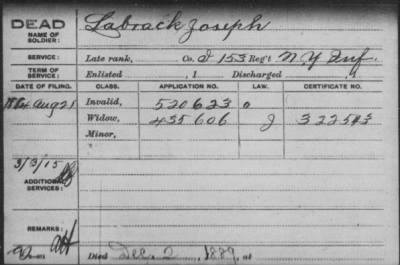 DEAD
NAME OF SOLDIER: Labrack Joseph
SERVICE: Late rank, Co. I 153 Reg't N Y Inf.
TERM OF SERVICE: Enlisted , 1 Discharged , 1
DATE OF FILING. CLASS. APPLICATION NO. LAW. CERTIFICATE NO.
Aug 21 Invalid, 520623
Widow, 435606 322543
Minor,
3/3/15
ADDITIONAL SERVICES:
REMARKS:
Died Dec. 2, 1889, at